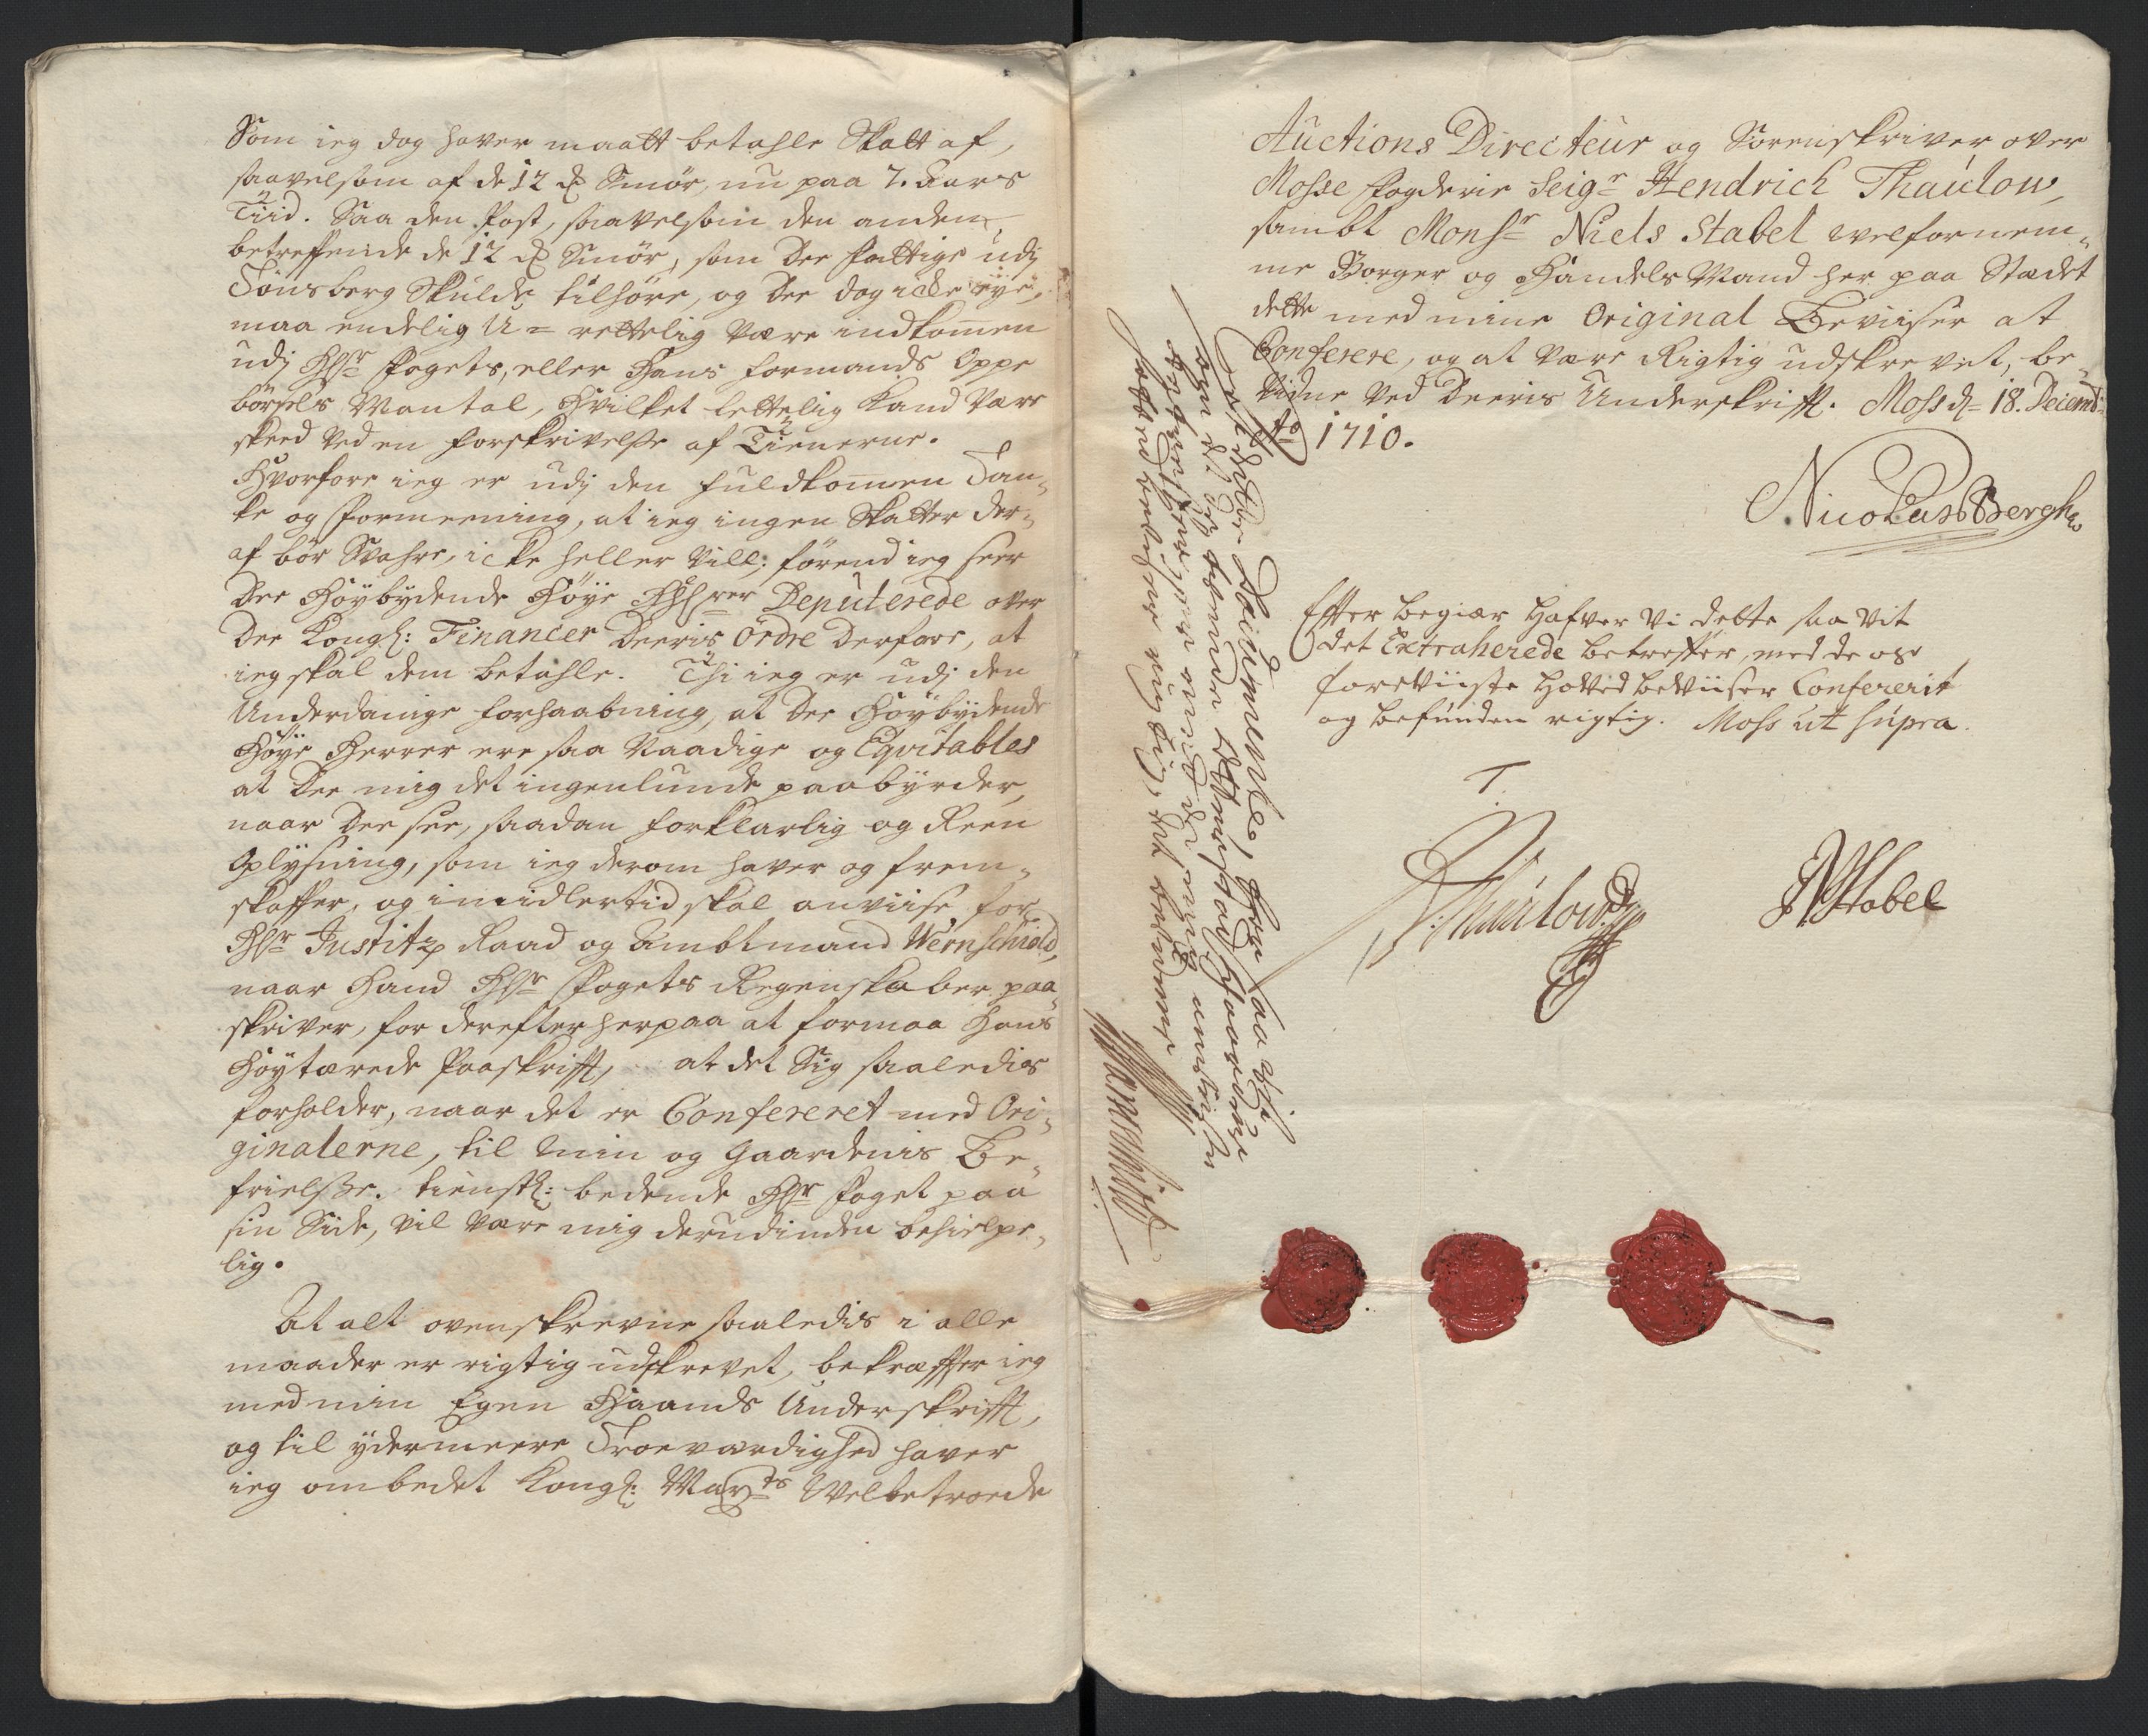 Som ieg dog haver maatt betahle Skatt af,
saavelsom af de 12 ℔ Smör, nu paa 7. Aars
Tiid. Saa den Post, saavelsom den anden,
betreffende de 12 ℔ Smör, som Dee fattige udj
Tönsberg Skulde tilhöre, og Dee dog icke eÿe,
maa endelig U= rettelig Være indkomen
udj Hr Fogets, eller Hans formands Oppe
börsels Mantal, Hvilket lettelig Kand Være
skeed Ved en forskrivelse af Tienerne.
Hvorfore ieg er udj den fuldkomen Tan„
ke og formeening, at ieg ingen Skatter der„
af bör Svahre, icke heller Vill, förend ieg seer
Dee Höybydende Höye Hhrrer Deputerede over
Dee Kongl: Financer Deeris Ordre Derfore, at
ieg skal dem betahle. Thi ieg er udj den
Underdanige forhaabning, at Dee Höybydende
Höye Herrer ere saa Naadige og Eqvitables
at Dee mig det ingenlunde paabÿrder,
naar Dee see, saadan forklarlig og Reen
Oplÿsning, som ieg derom haver og frem„
skaffer, og imidlertid skal anviise for
Hr Justitz Raad og Ambtmand Wernschiold,
naar Hand Hr Fogets Regenskaber paa„
skriver, for derefter herpaa at formaa Hans
Höytærede Paaskrifft, at det Sig saaledis
forholder, naar det er Confereret med Ori„
ginalerne, til min og Gaardenis Be„
frielsse. tienstl: bedende Hr Foget paa
sin Side, Vil Være mig derudinden behielpe„
lig.
At alt ovenskrevne saaledis i alle
maader er rigtig udskrevet, bekræffter ieg
med min Egen Haands Underskrifft,
og til ÿdermeere Troeværdighed haver
ieg ombedet Kongl: Mayts Welbetroede
Auctions Directeur og Sorenskriver over
Mosse Fogderie Seigr Hendrich Thaulow,
sambt Monsr Niels Stabel velfornem„
me Borger og Handels Mand her paa Stædet
dette med mine Original Beviiser at
Conferere, og at Være Rigtig udskrevet, be„
vidne Ved Deeris Underskrifft. Moss d= 18. Decemb:
Ao 1710.
Nicolas Bergh
Efter begiær Hafver Vi dette saa vit
det Extraherede betreffer, med de os
foreviiste Hoved beviiser Confererit
og befunden rigtig. Moss ut supra.
T.
Thaulow
N Stabel